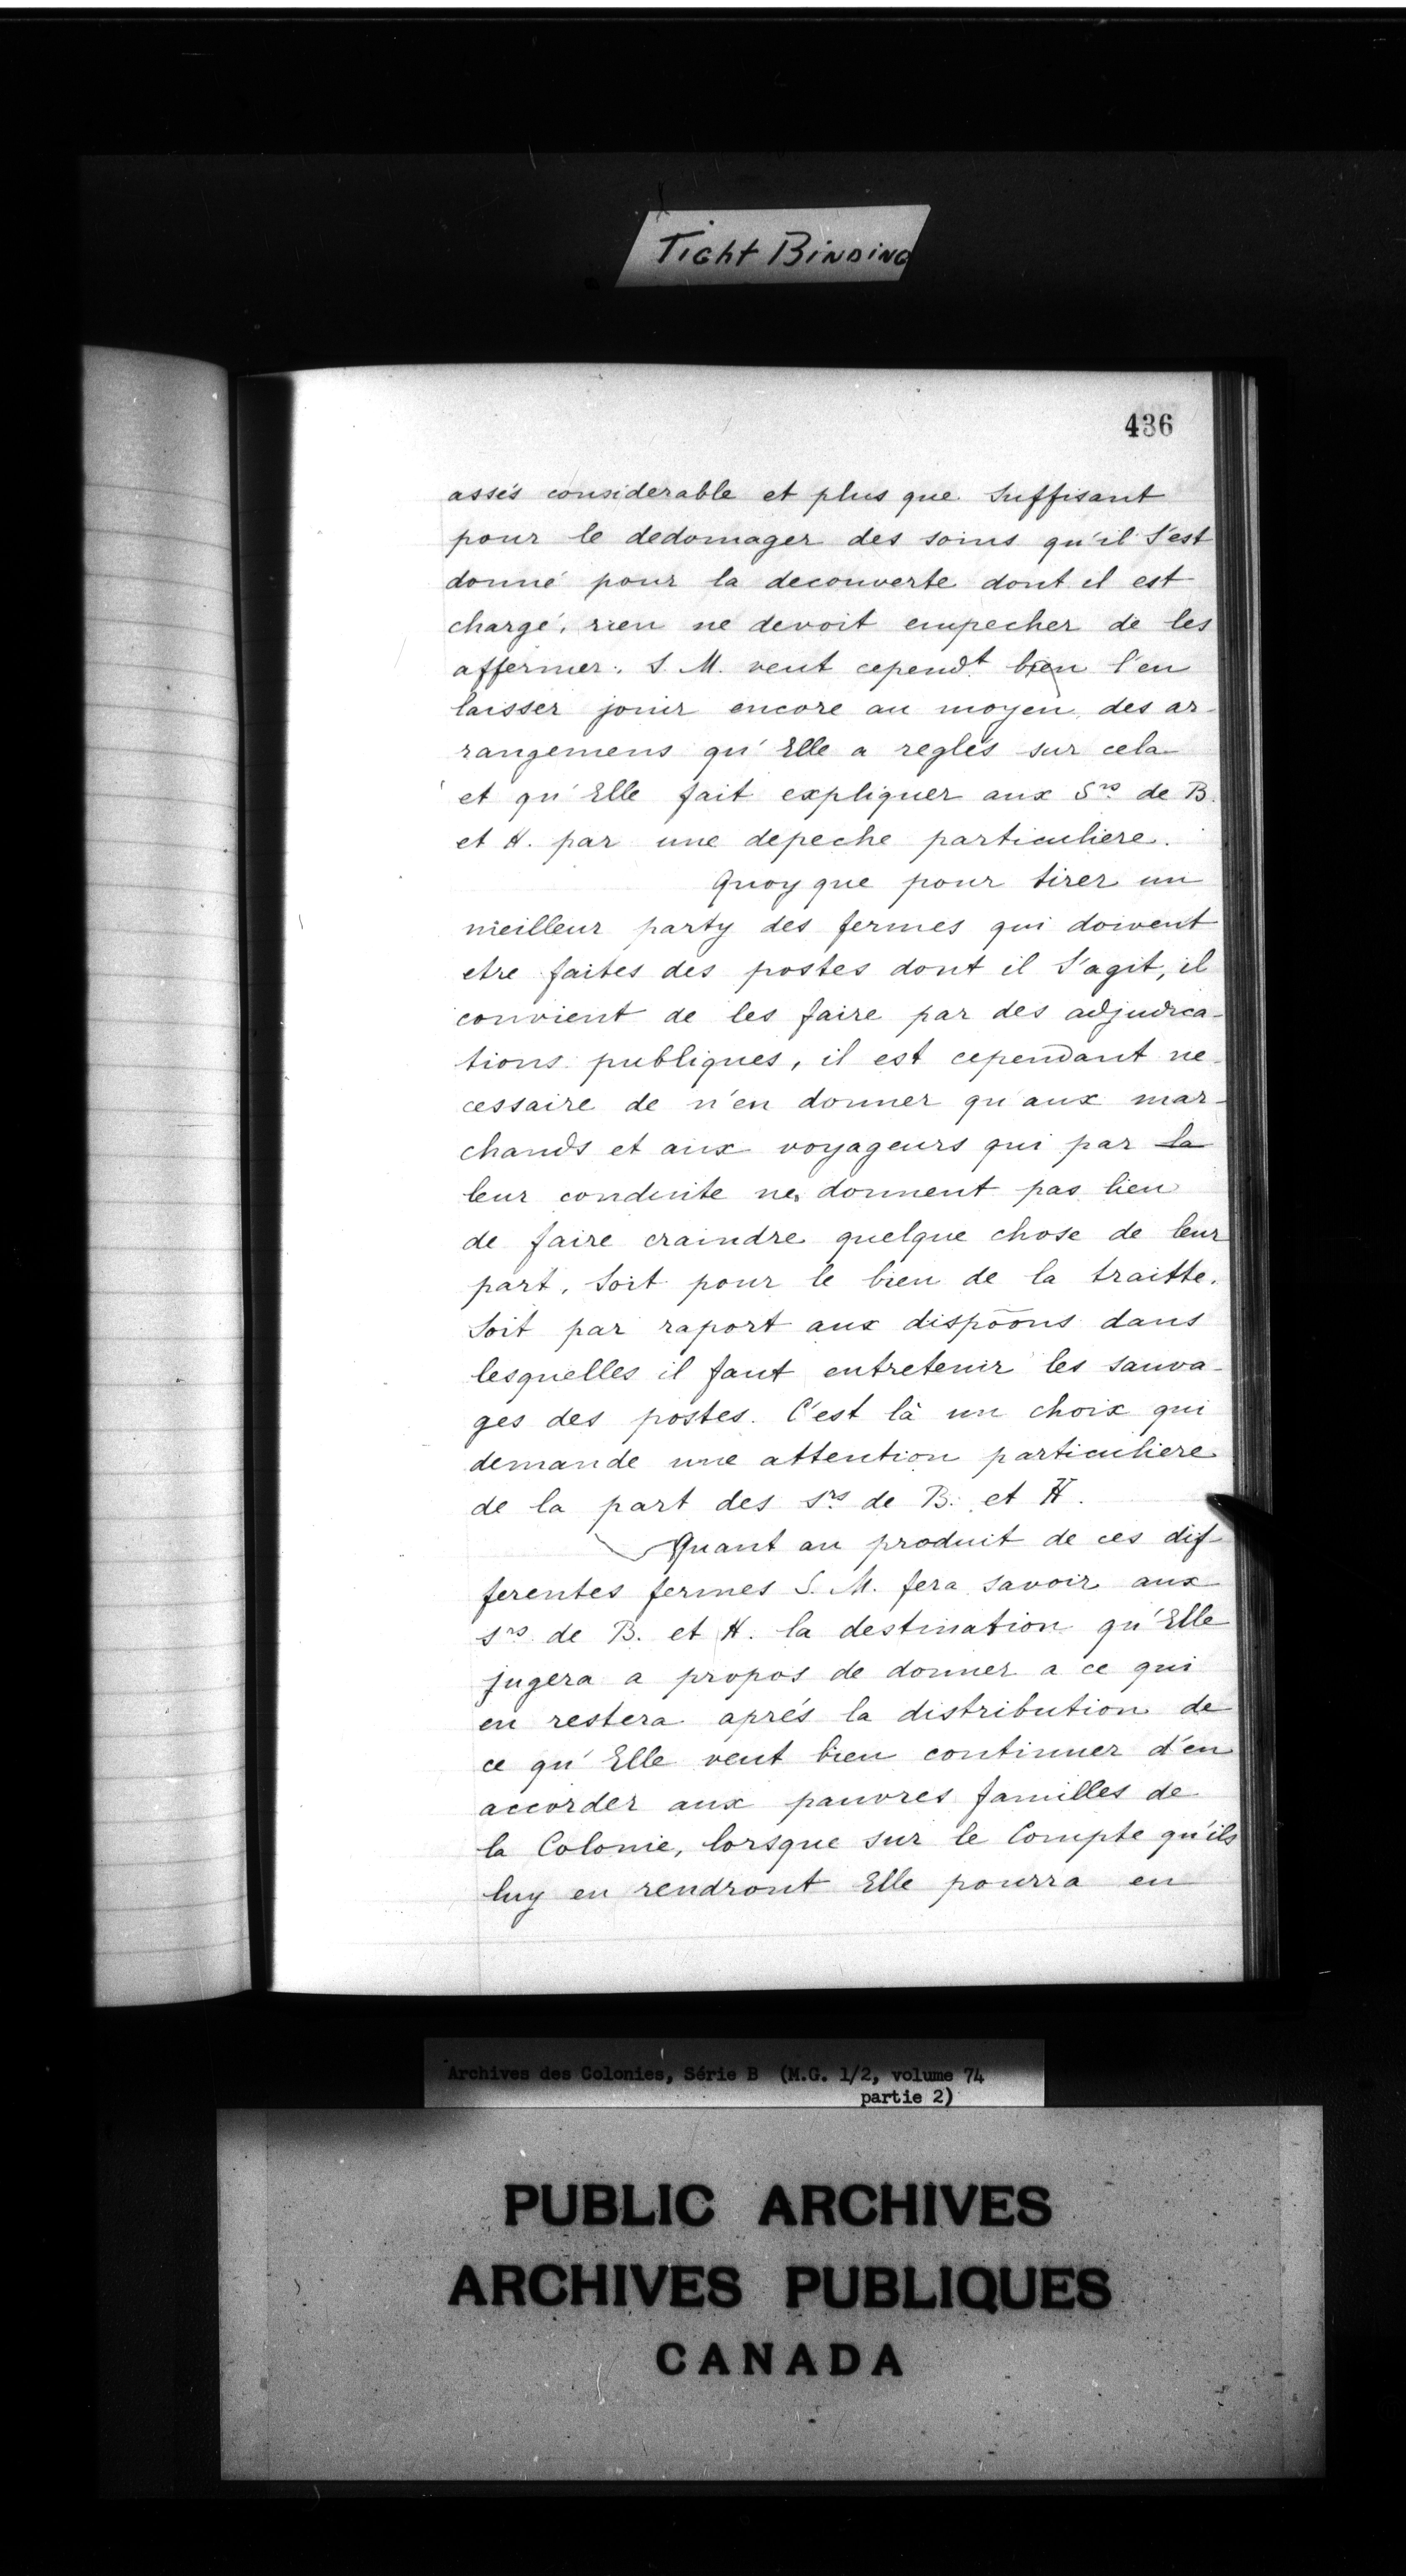 Tight Binding
436
assés considerable et plus que suffisant
pour le dedomager des soins qu'il s'est
donné pour la decouverte dont il est
chargé, rien ne devoit empecher de les
affermer. S. M. veut cependt bien l'en
laisser jouir encore au moyen des ar-
rangemens qu'Elle a reglés sur cela
et qu'Elle fait expliquer aux Srs de B.
et H. par une depeche particuliere.
Quoy que pour tirer un
meilleur party des fermes qui doivent
etre faites des postes dont il s'agit, il
convient de les faire par des adjudica-
tions publiques, il est cependant ne-
cessaire de n'en donner qu'aux mar-
chands et aux voyageurs qui par la
leur conduite ne donnent pas lieu
de faire craindre quelque chose de leur
part, soit pour le bien de la traitte,
soit par raport aux dispōōns dans
lesquelles il faut entretenir les sauva-
ges des postes. C'est là un choix qui
demande une attention particuliere
de la part des srs de B. et H.
Quant au produit de ces dif-
ferentes fermes S. M. fera savoir aux
srs de B. et H. la destination qu'Elle
jugera a propos de donner a ce qui
en restera aprés la distribution de
ce qu'Elle veut bien continuer d'en
accorder aux pauvres familles de
la Colonie, lorsque sur le Compte qu'ils
luy en rendront Elle pourra en
Archives des Colonies, Série B (M.G. 1/2, volume 74
partie 2)
PUBLIC ARCHIVES
ARCHIVES PUBLIQUES
CANADA